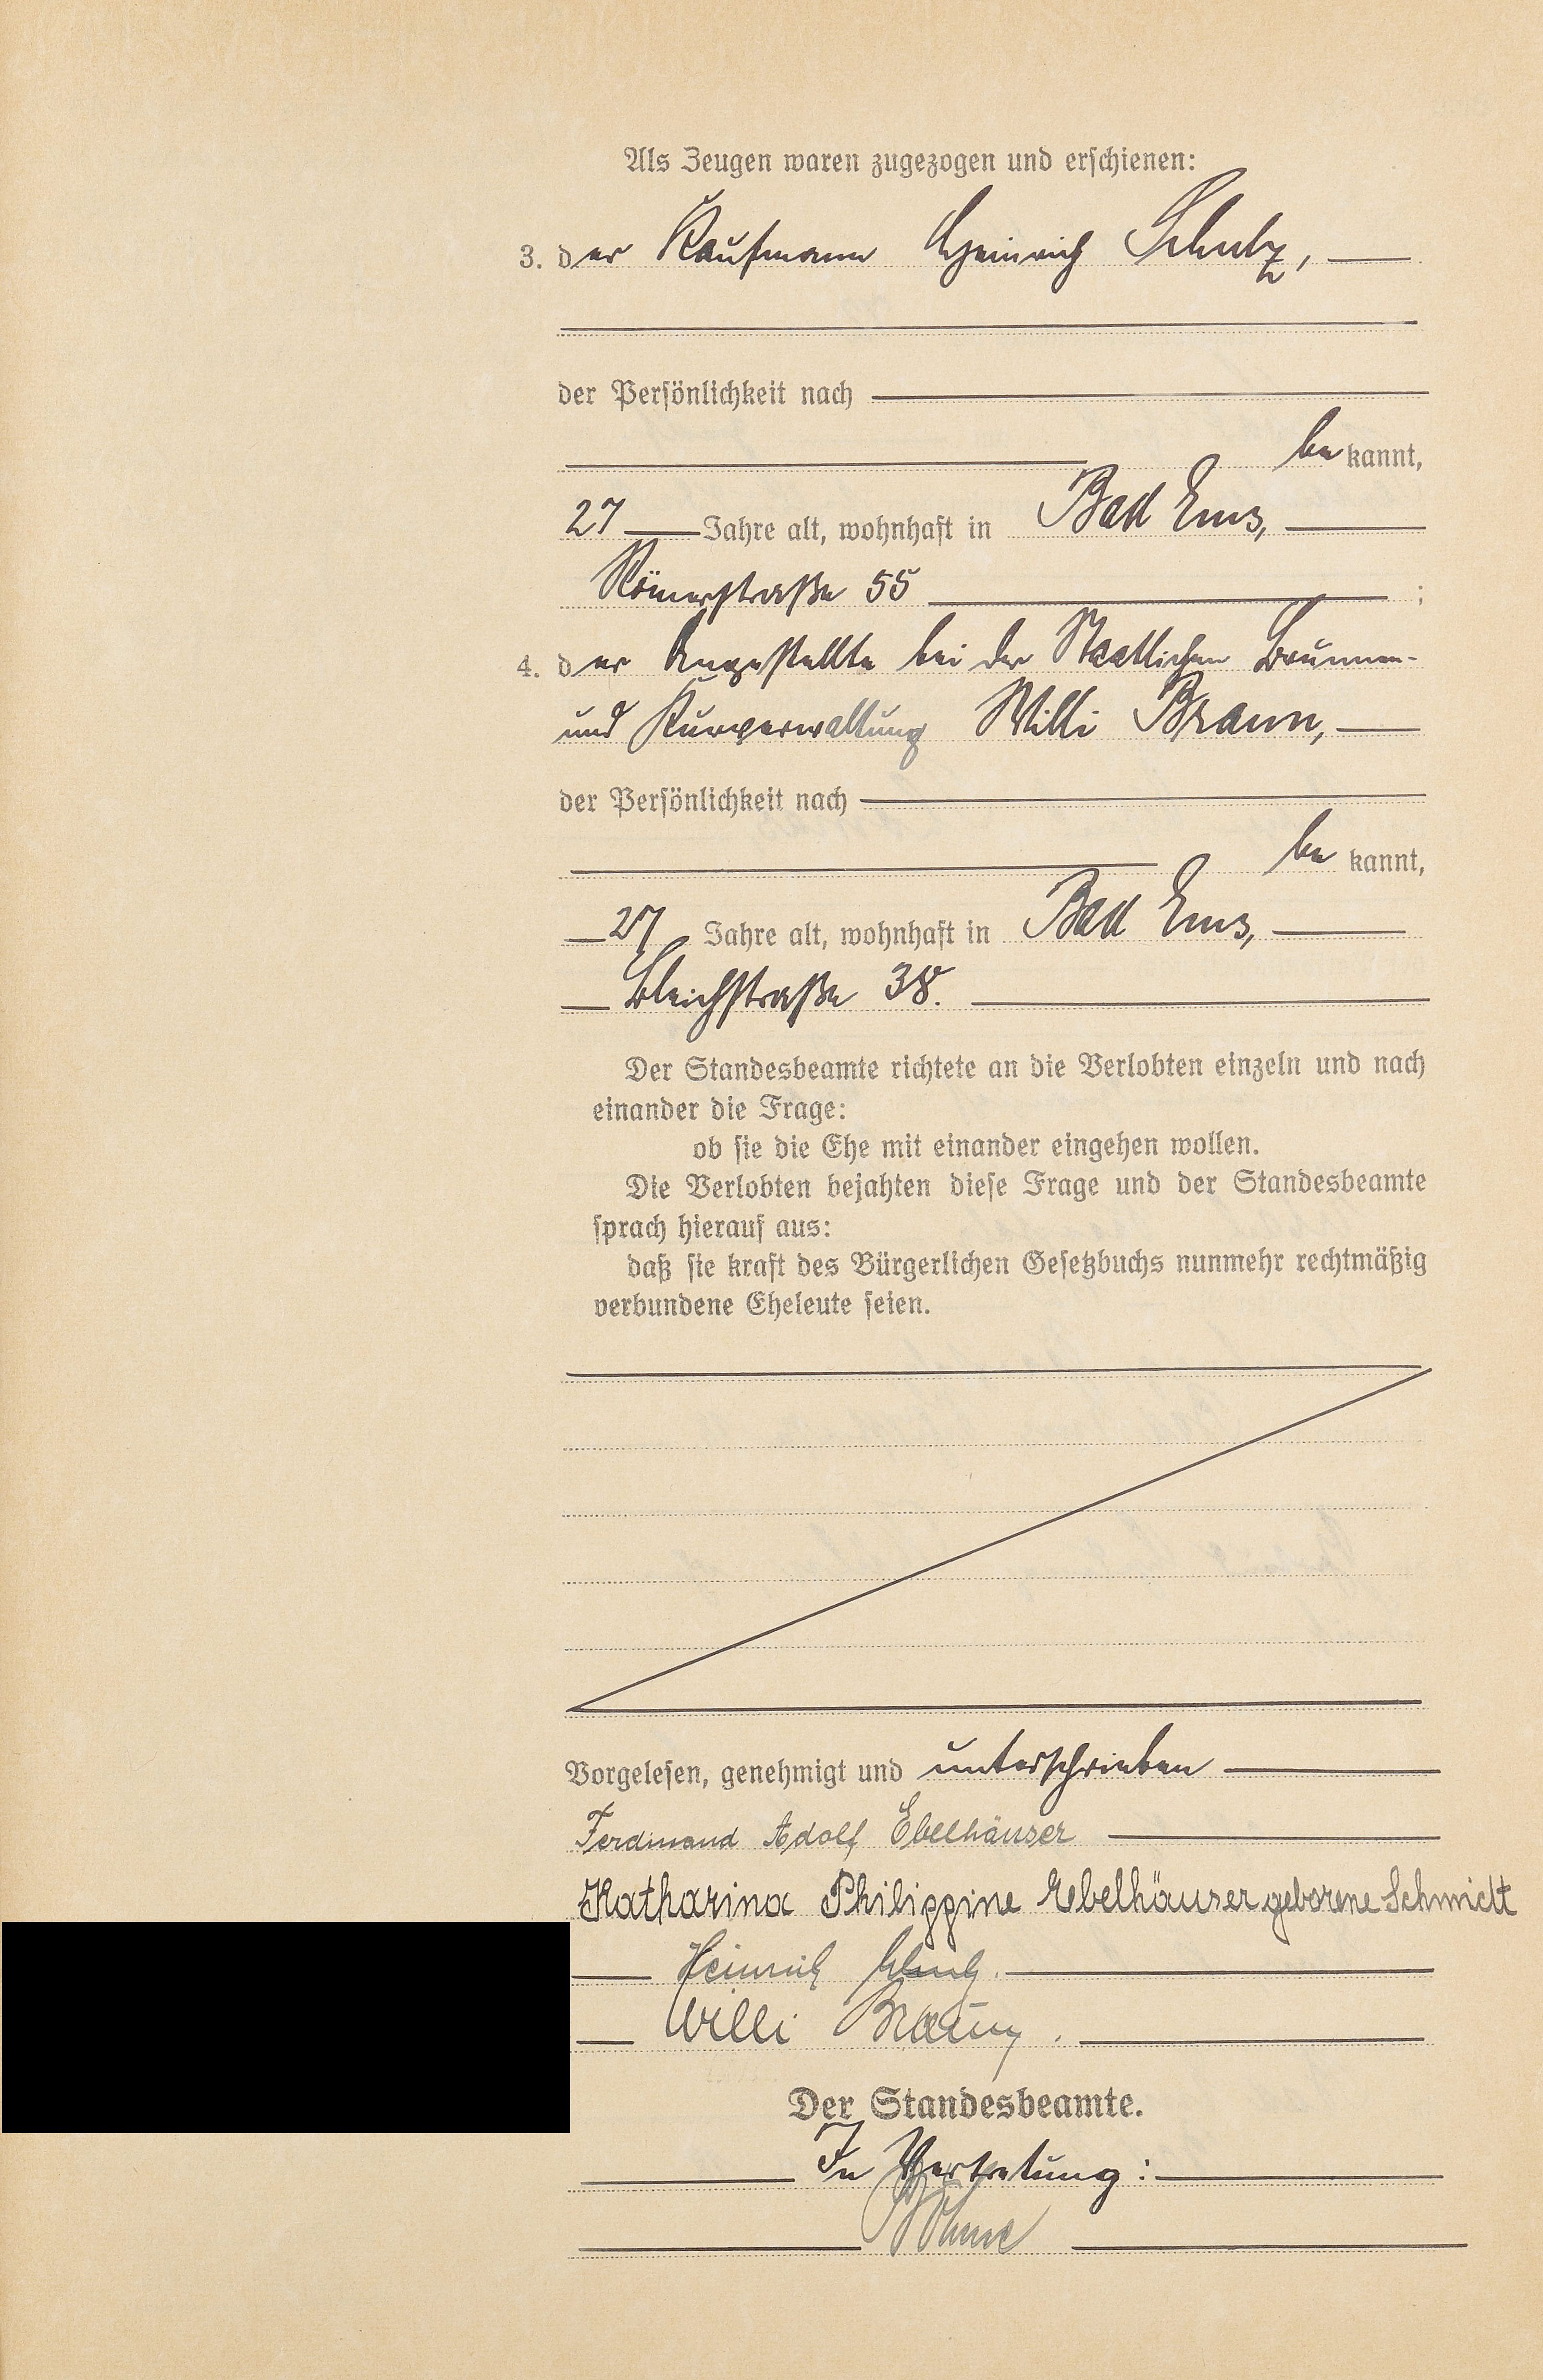 Als Zeugen waren zugezogen und erschienen:
3. der Kaufmann Heinrich Schulz,
der Persönlichkeit nach
bekannt,
27 Jahre alt, wohnhaft in Bad Ems,
Römerstraße 55 ;
4. der Angestellte bei der Staatlichen Brunnen-
und Kurverwaltung Willi Braun,
der Persönlichkeit nach
bekannt,
27 Jahre alt, wohnhaft in Bad Ems,
Bleichstraße 38.
Der Standesbeamte richtete an die Verlobten einzeln und nach
einander die Frage:
ob sie die Ehe mit einander eingehen wollen.
Die Verlobten bejahten diese Frage und der Standesbeamte
sprach hierauf aus:
daß sie kraft des Bürgerlichen Gesetzbuchs nunmehr rechtmäßig
verbundene Eheleute seien.
Vorgelesen, genehmigt und unterschrieben
Ferdinand Adolf Ebelhäuser
Katharina Philippine Ebelhäuser geborene Schmidt
Heinrich
Willi Braun.
Der Standesbeamte.
In Vertretung:
Böhme